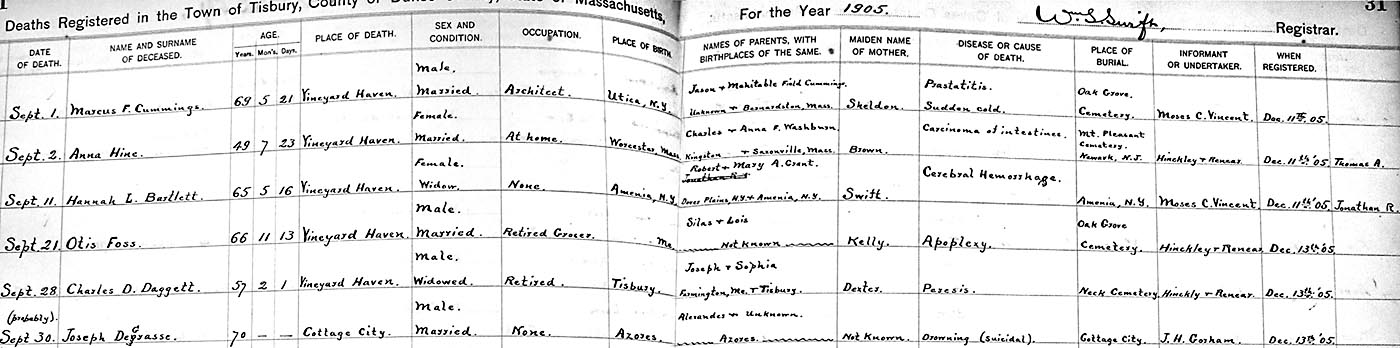 Deaths Registered in the Town of Tisbury, County of Massachusetts, For the Year 1905. Wm S Swift, Registrar. 31
DATE OF DEATH. NAME AND SURNAME OF DECEASED. AGE. Years. Mon's. Days. PLACE OF DEATH. SEX AND CONDITION. OCCUPATION. PLACE OF BIRTH. NAMES OF PARENTS, WITH BIRTHPLACES OF THE SAME. MAIDEN NAME OF MOTHER. DISEASE OR CAUSE OF DEATH. PLACE OF BURIAL. INFORMANT OR UNDERTAKER. WHEN REGISTERED.
Male. Jason & Mehitable Field Cummings. Prastatitis. Oak Grove.
Sept. 1. Marcus F. Cummings. 69 5 21 Vineyard Haven. Married. Architect. Utica, N.Y. Unknown & Bernardston, Mass. Sheldon. Sudden cold. Cemetery. Moses C. Vincent. Dec. 11th '05.
Female. Charles & Anna F. Washburn. Carcinoma of intestines. Mt. Pleasant Cemetery.
Sept. 2. Anna Hine. 49 7 23 Vineyard Haven. Married. At home. Worcester, Mass. Kingston & Saxonville, Mass. Brown. Newark, N.J. Hinckley & Renear. Dec. 11th '05. Thomas A.
Female. Robert & Mary A. Grant. Cerebral Hemorrhage.
Jonathan R. &
Sept. 11. Hannah L. Bartlett. 65 5 16 Vineyard Haven. Widow. None. Amenia, N.Y. Dover Plains, N.Y. & Amenia, N.Y. Swift. Amenia, N.Y. Moses C. Vincent. Dec. 11th '05. Jonathan R.
Male. Silas & Lois Oak Grove
Sept. 21. Otis Foss. 66 11 13 Vineyard Haven. Married. Retired Grocer. Me. Not Known Kelly. Apoplexy. Cemetery. Hinckley & Renear. Dec. 13th '05.
Male. Joseph & Sophia
Sept. 28 Charles D. Daggett. 57 2 1 Vineyard Haven. Widowed. Retired. Tisbury. Farmington, Me. & Tisbury. Dexter. Paresis. Neck Cemetery. Hinckly & Renear. Dec. 13th '05.
(probably). Male. Alexander & Unknown.
Sept 30. Joseph DeGrasse. 70 — — Cottage City. Married. None. Azores. Azores. Not Known. Drowning (suicidal). Cottage City. J. H. Gorham. Dec. 13th '05.